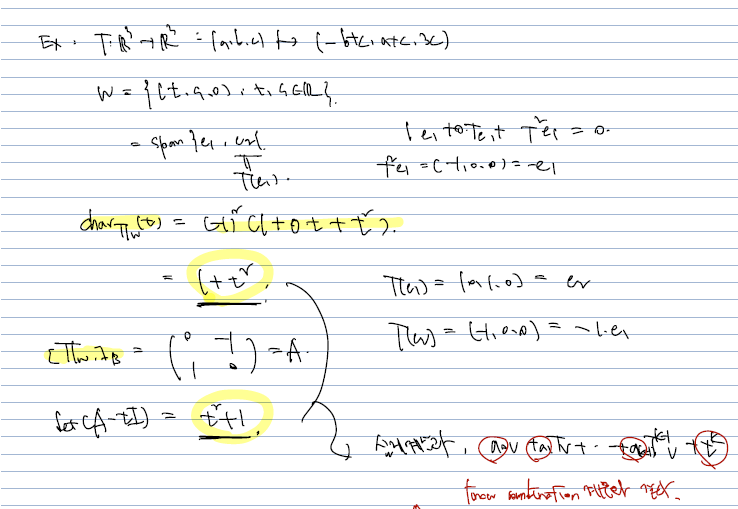 Ex. T: R³ → R³ : (a,b,c) ↦ (-b+c, a+c, 3c)
W = {(t,s,0), t,s∈R}.
= span{e₁, e₂}
T(e₁).
1 e₁ + 0·Te₁ + T²e₁ = 0.
T²e₁ = (-1,0,0) = -e₁
char_{T|W}(t) = (-1)²(1+0t+t²).
= 1+t².
T(e₁) = (0,1,0) = e₂
T(e₂) = (-1,0,0) = -1·e₁
[T|W]_B = (0 -1
1 0) = A.
det(A-tI) = t²+1.
a₀v + a₁Tv + ⋯ + T^{k-1}v + t^k
linear combination